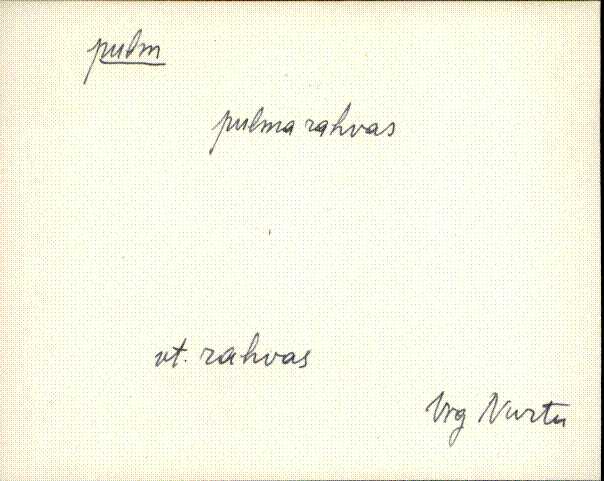 pulm
pulma rahvas
vt. rahvas
Vig Nurtu